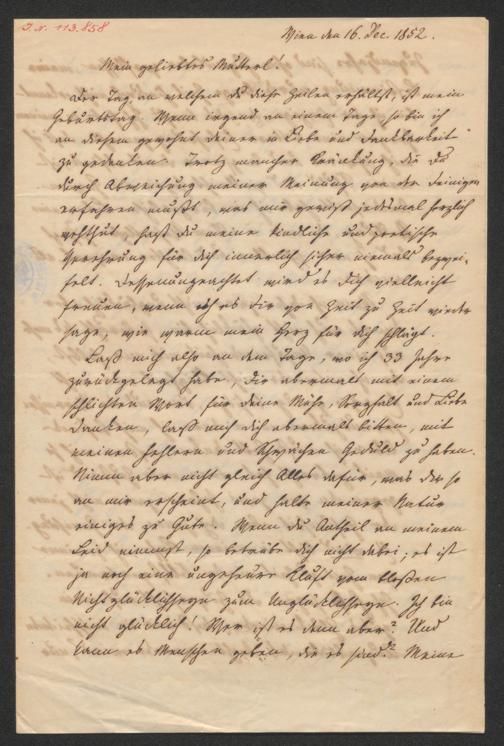 J. N. 113.858
Wien den 16. Dec. 1852.
Mein geliebtes Mutterl!
Der Tag an welchem du diese Zeilen erhältst, ist mein
Geburtstag. Wenn irgend an einem Tage, so bin ich
an diesem gewohnt deiner in Liebe und Dankbarkeit
zu gedenken. Trotz mancher Kränkung, die du
durch Abweichung meiner Meinung von der Deinigen
erfahren mußt, was mir gewiß jedesmal herzlich
wehthut, hast du meine kindliche und
Verehrung für dich innerlich sicher niemals bezwei-
felt. Dessenungeachtet wird es dich vielleicht
freuen, wenn ich es dir von Zeit zu Zeit wieder
sage, wie warm mein Herz für dich schlägt.
Laß mich also an dem Tage, wo ich 33 Jahre
zurückgelegt habe, dir abermals mit einem
schlichten Wort für deine Mühe, Sorgfalt und Liebe
danken, laß mich dich abermals bitten, mit
meinen Fehlern und Schwächen Geduld zu haben.
Nimm aber nicht gleich Alles dafür, was dir so
an mir erscheint, und halte meiner Natur
einiges zu Gute. Wenn du Antheil an meinem
Leid nimmst, so betrübe dich nicht dabei, es ist
ja noch eine ungeheure Kluft vom bloßen
Nichtglücklichseyn zum Unglücklichseyn. Ich bin
nicht glücklich. Wer ist es denn aber? Und
kann es Menschen geben, die es sind? Meine